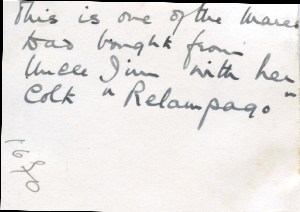 This is one of the Mares
Dad bought from
Uncle Jim with her
Colt "Relampago"